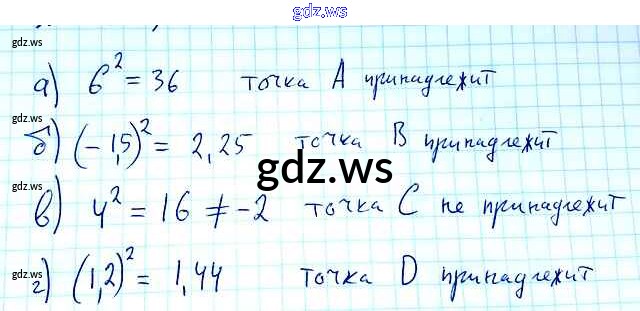 gdz.ws
gdz.ws
а) 6² = 36 точка A принадлежит
gdz.ws
б) (-1,5)² = 2,25 точка B принадлежит
gdz.ws
gdz.ws
в) 4² = 16 ≠ -2 точка C не принадлежит
gdz.ws
г) (1,2)² = 1,44 точка D принадлежит